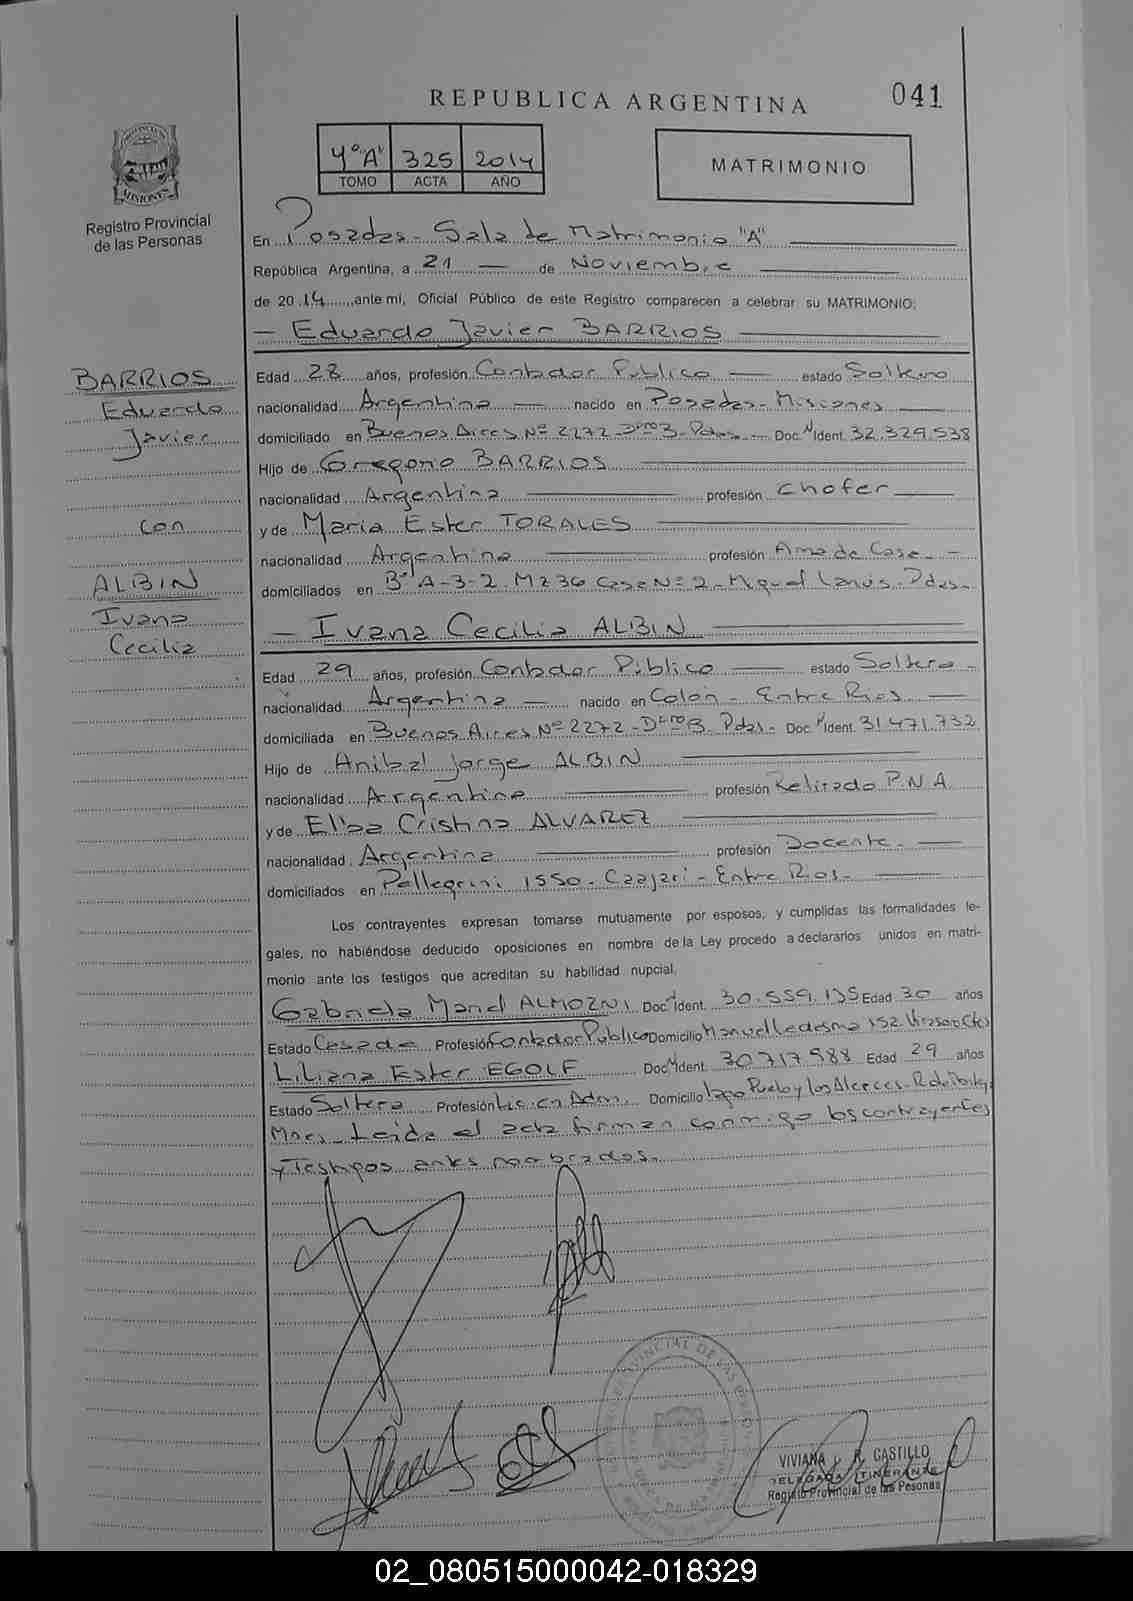 REPUBLICA ARGENTINA
041
4º "A" 325 2014
TOMO ACTA AÑO
MATRIMONIO
Registro Provincial
de las Personas
En Posadas - Sala de Matrimonio "A"
República Argentina, a 21 de Noviembre
de 2014, ante mi, Oficial Público de este Registro comparecen a celebrar su MATRIMONIO:
Eduardo Javier BARRIOS
BARRIOS
Eduardo
Javier
con
ALBIN
Ivana
Cecilia
Edad 28 años, profesión Contador Público estado Soltero
nacionalidad Argentina nacido en Posadas - Misiones
domiciliado en Buenos Aires Nº 2272 - Dpto B - Pdas - Doc. N Ident. 32.329.538
Hijo de Gregorio BARRIOS
nacionalidad Argentina profesión Chofer
y de Maria Ester TORALES
nacionalidad Argentina profesión Ama de Casa -
domiciliados en Bº A-3-2 Mz 36 Casa Nº 2 - Miguel Lanús - Pdas -
- Ivana Cecilia ALBIN
Edad 29 años, profesión Contador Público estado Soltera -
nacionalidad Argentina nacido en Colón - Entre Rios
domiciliada en Buenos Aires Nº 2272 - Dpto B. Pdas - Doc. N Ident. 31.471.732
Hijo de Anibal Jorge ALBIN
nacionalidad Argentina profesión Retirado P.N.A.
y de Elisa Cristina ALVAREZ
nacionalidad Argentina profesión Docente -
domiciliados en Pellegrini 1550 - Chajari - Entre Rios -
Los contrayentes expresan tomarse mutuamente por esposos, y cumplidas las formalidades le-
gales, no habiéndose deducido oposiciones en nombre de la Ley procedo a declararlos unidos en matri-
monio ante los testigos que acreditan su habilidad nupcial.
Gabriela Mariel ALMOZNI Doc. N Ident. 30.559.135 Edad 30 años
Estado Casada Profesión Contador Público Domicilio Manuel Ledesma 152 Virasoro Ctes
Liliana Ester EGOLF Doc. N Ident. 30717588 Edad 29 años
Estado Soltera Profesión Lic. en Adm. Domicilio Lapo Puelo y los Alerces -
Mnes - Leida el acta firman conmigo los contrayentes
y Testigos antes nombrados.
VIVIANA R. CASTILLO
DELEGADA ITINERANTE
Registro Provincial de las Pesonas
02_080515000042-018329